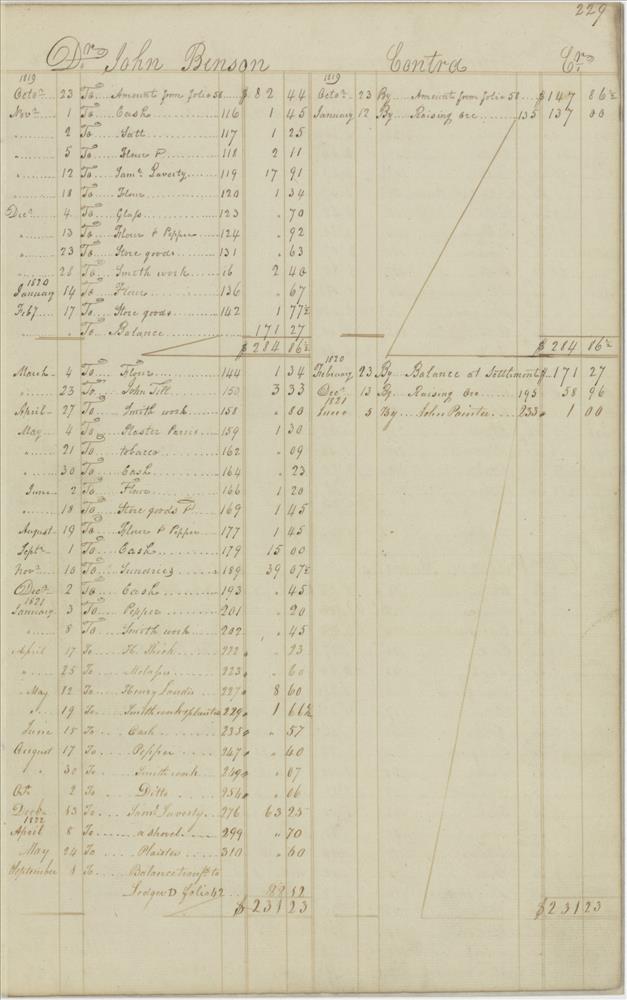 229
Dr. John Benson Contra Cr.
1819 1819
Octor. 23 To Amounts from folio 58 $ 82 44 Octor. 23 By Amounts from folio 58 $ 147 86½
Novr. 1 To Cash 116 1 45 January 12 By Raising ore 135 137 00
" 2 To Salt 117 1 25
" 5 To Flour P 118 2 11
" 12 To Saml. Laverty 119 17 91
" 18 To Flour 120 1 34
Decr. 4 To Glass 123 " 70
" 13 To Flour & Pepper 124 " 92
" 23 To Store goods 131 " 63
" 28 To Smith work 16 2 40
1820
January 14 To Flour 136 " 67
Feby. 17 To Store goods 142 1 77½
" " To Balance 171 27
$ 284 86½ $ 284 86½
1820
March 4 To Flour 144 1 34 February 23 By Balance at Settlement $ 171 27
" 23 To John Till 150 3 33 Decr. 13 By Raising Ore 195 58 96
1821
April 27 To Smith work 158 " 80 June 5 By John Painter 233 1 00
May 4 To Plaster Parris 159 1 30
" 21 To tobacco 162 " 09
" 30 To Cash 164 " 23
June 2 To Flour 166 1 20
" 18 To Store goods P 169 1 45
August 19 To Flour & Pepper 177 1 45
Septr. 1 To Cash 179 15 00
Novr. 10 To Sundries 189 39 07½
Decr. 2 To Cash 193 " 45
1821
January 3 To Pepper 201 " 20
" 8 To Smith work 202 " 45
April 17 To H. Shick 222 " 23
" 25 To Molasses 223 " 60
May 12 To Henry Landis 227 8 60
" 19 To Smith work & plaister 229 1 66½
June 15 To Cash 235 " 57
August 17 To Pepper 247 " 40
" 30 To Smith work 249 " 07
Oct. 2 To Ditto 254 " 06
Decb. 13 To Saml. Laverty 276 63 25
1822
April 8 To a shovel 299 " 70
May 24 To Plaister 310 " 60
September 1 To Balance transfd. to
Ledger D folio 42 82 52
$ 231 23 $ 231 23